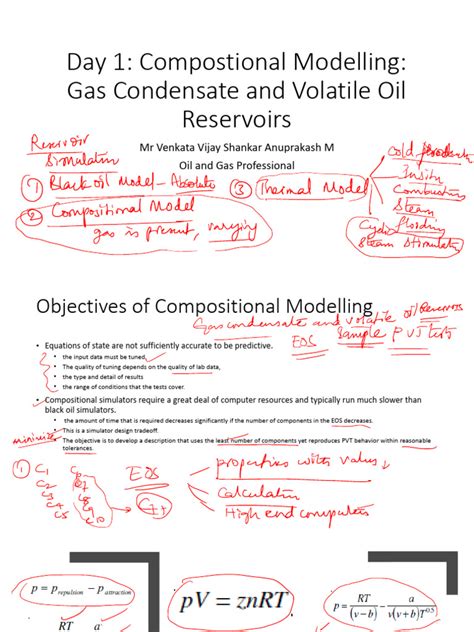 Day 1: Compostional Modelling:
Gas Condensate and Volatile Oil
Reservoirs
Mr Venkata Vijay Shankar Anuprakash M
Oil and Gas Professional
Reservoir
Simulation
① Black oil Model - Absolute
② Compositional Model
gas is present, varying
③ Thermal Model
Cold
Insitu
Combustion
Steam
flooding
Cyclic
Steam Stimulation
Objectives of Compositional Modelling
Gas condensate and volatile oil Reservoirs
EOS Sample PVT tests
• Equations of state are not sufficiently accurate to be predictive.
• the input data must be tuned,
• The quality of tuning depends on the quality of lab data,
• the type and detail of results
• the range of conditions that the tests cover.
• Compositional simulators require a great deal of computer resources and typically run much slower than
black oil simulators.
• the amount of time that is required decreases significantly if the number of components in the EOS decreases.
• This is a simulator design tradeoff.
minimize
• The objective is to develop a description that uses the least number of components yet reproduces PVT behavior within reasonable
tolerances.
① C1
C2
C3
C4
C5
C7
C8
C9
C10
C7+
EOS
properties with values
Calculation
High end computers
p = p repulsion − p attraction
pV = znRT
p = RT/(v−b) − a/(v(v+b)T^0.5)
RT a